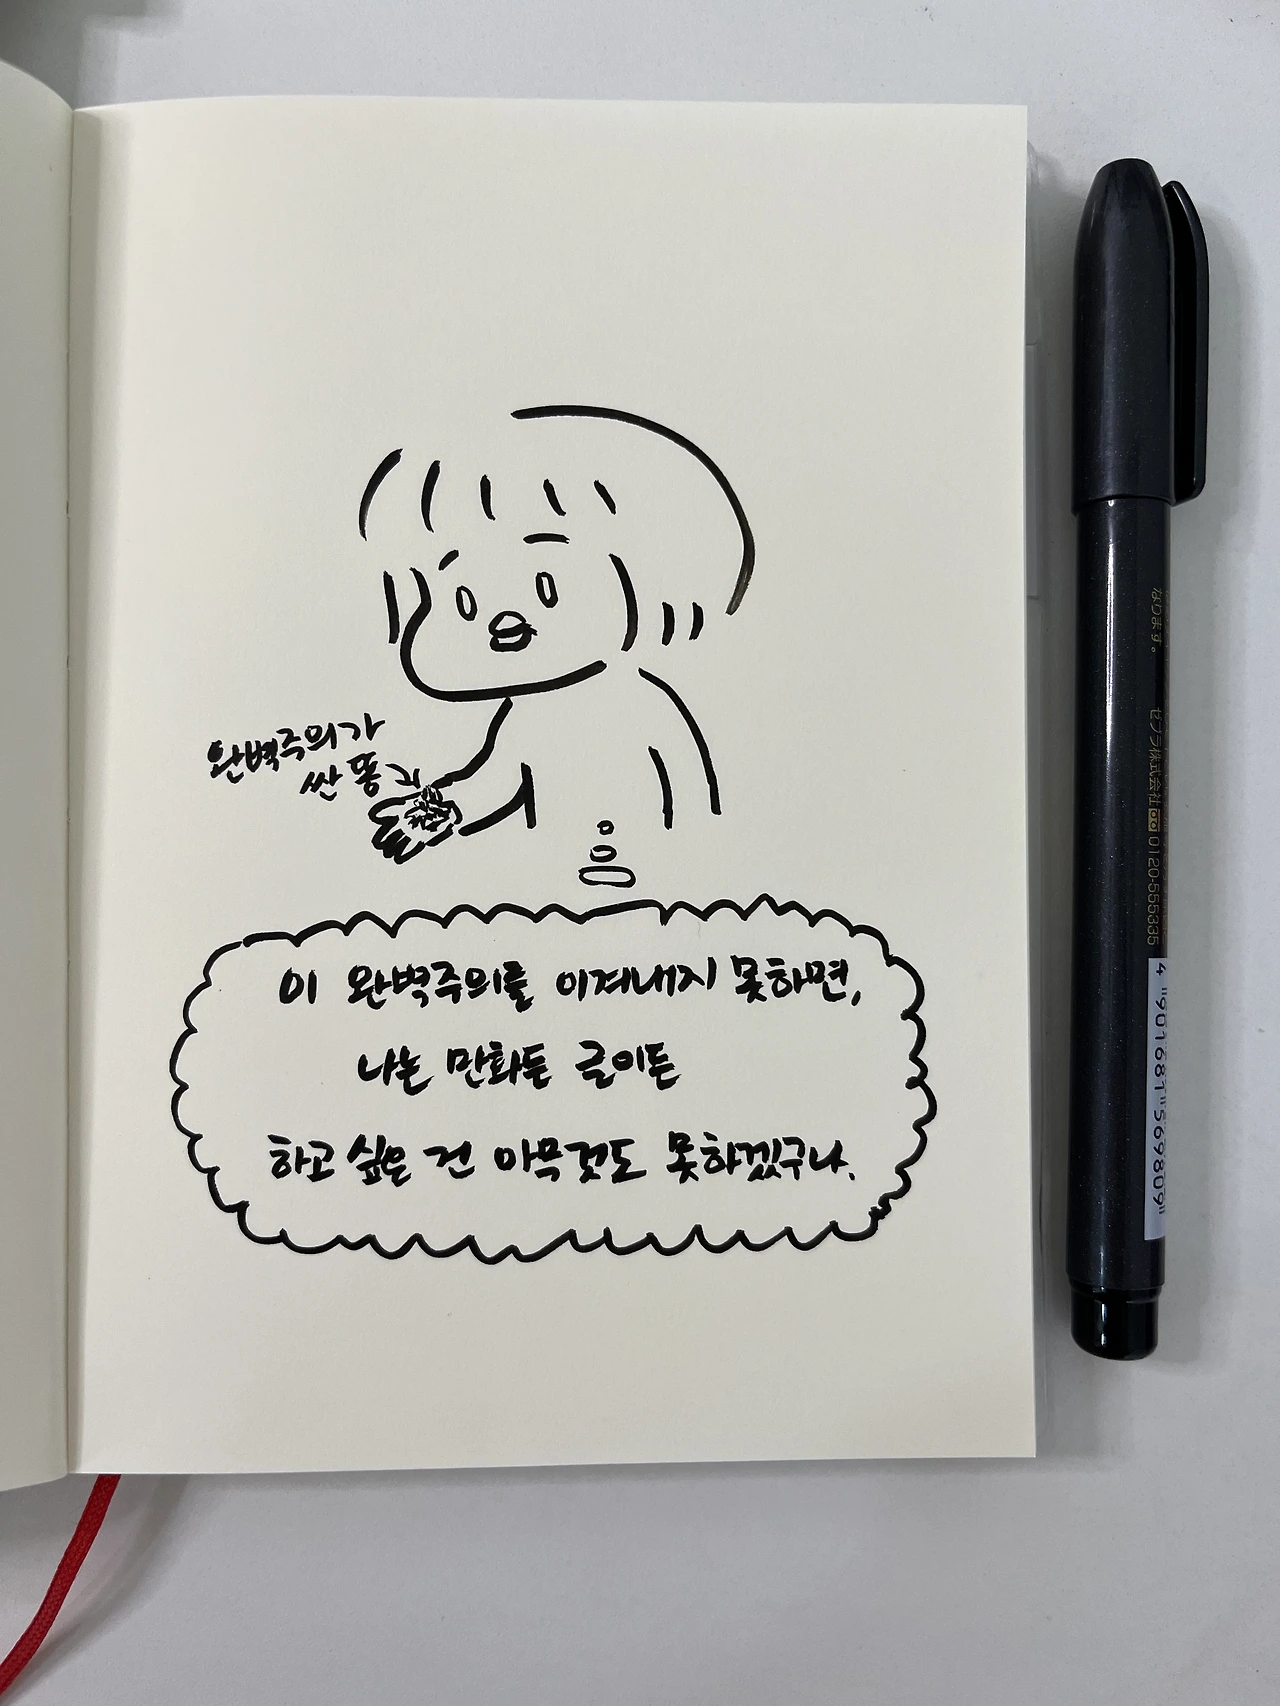 완벽주의가
싼 똥
이 완벽주의를 이겨내지 못하면,
나는 만화든 글이든
하고 싶은 건 아무것도 못하겠구나.
なります。
ゼブラ株式会社 0120-555335
4 "901681"569809"